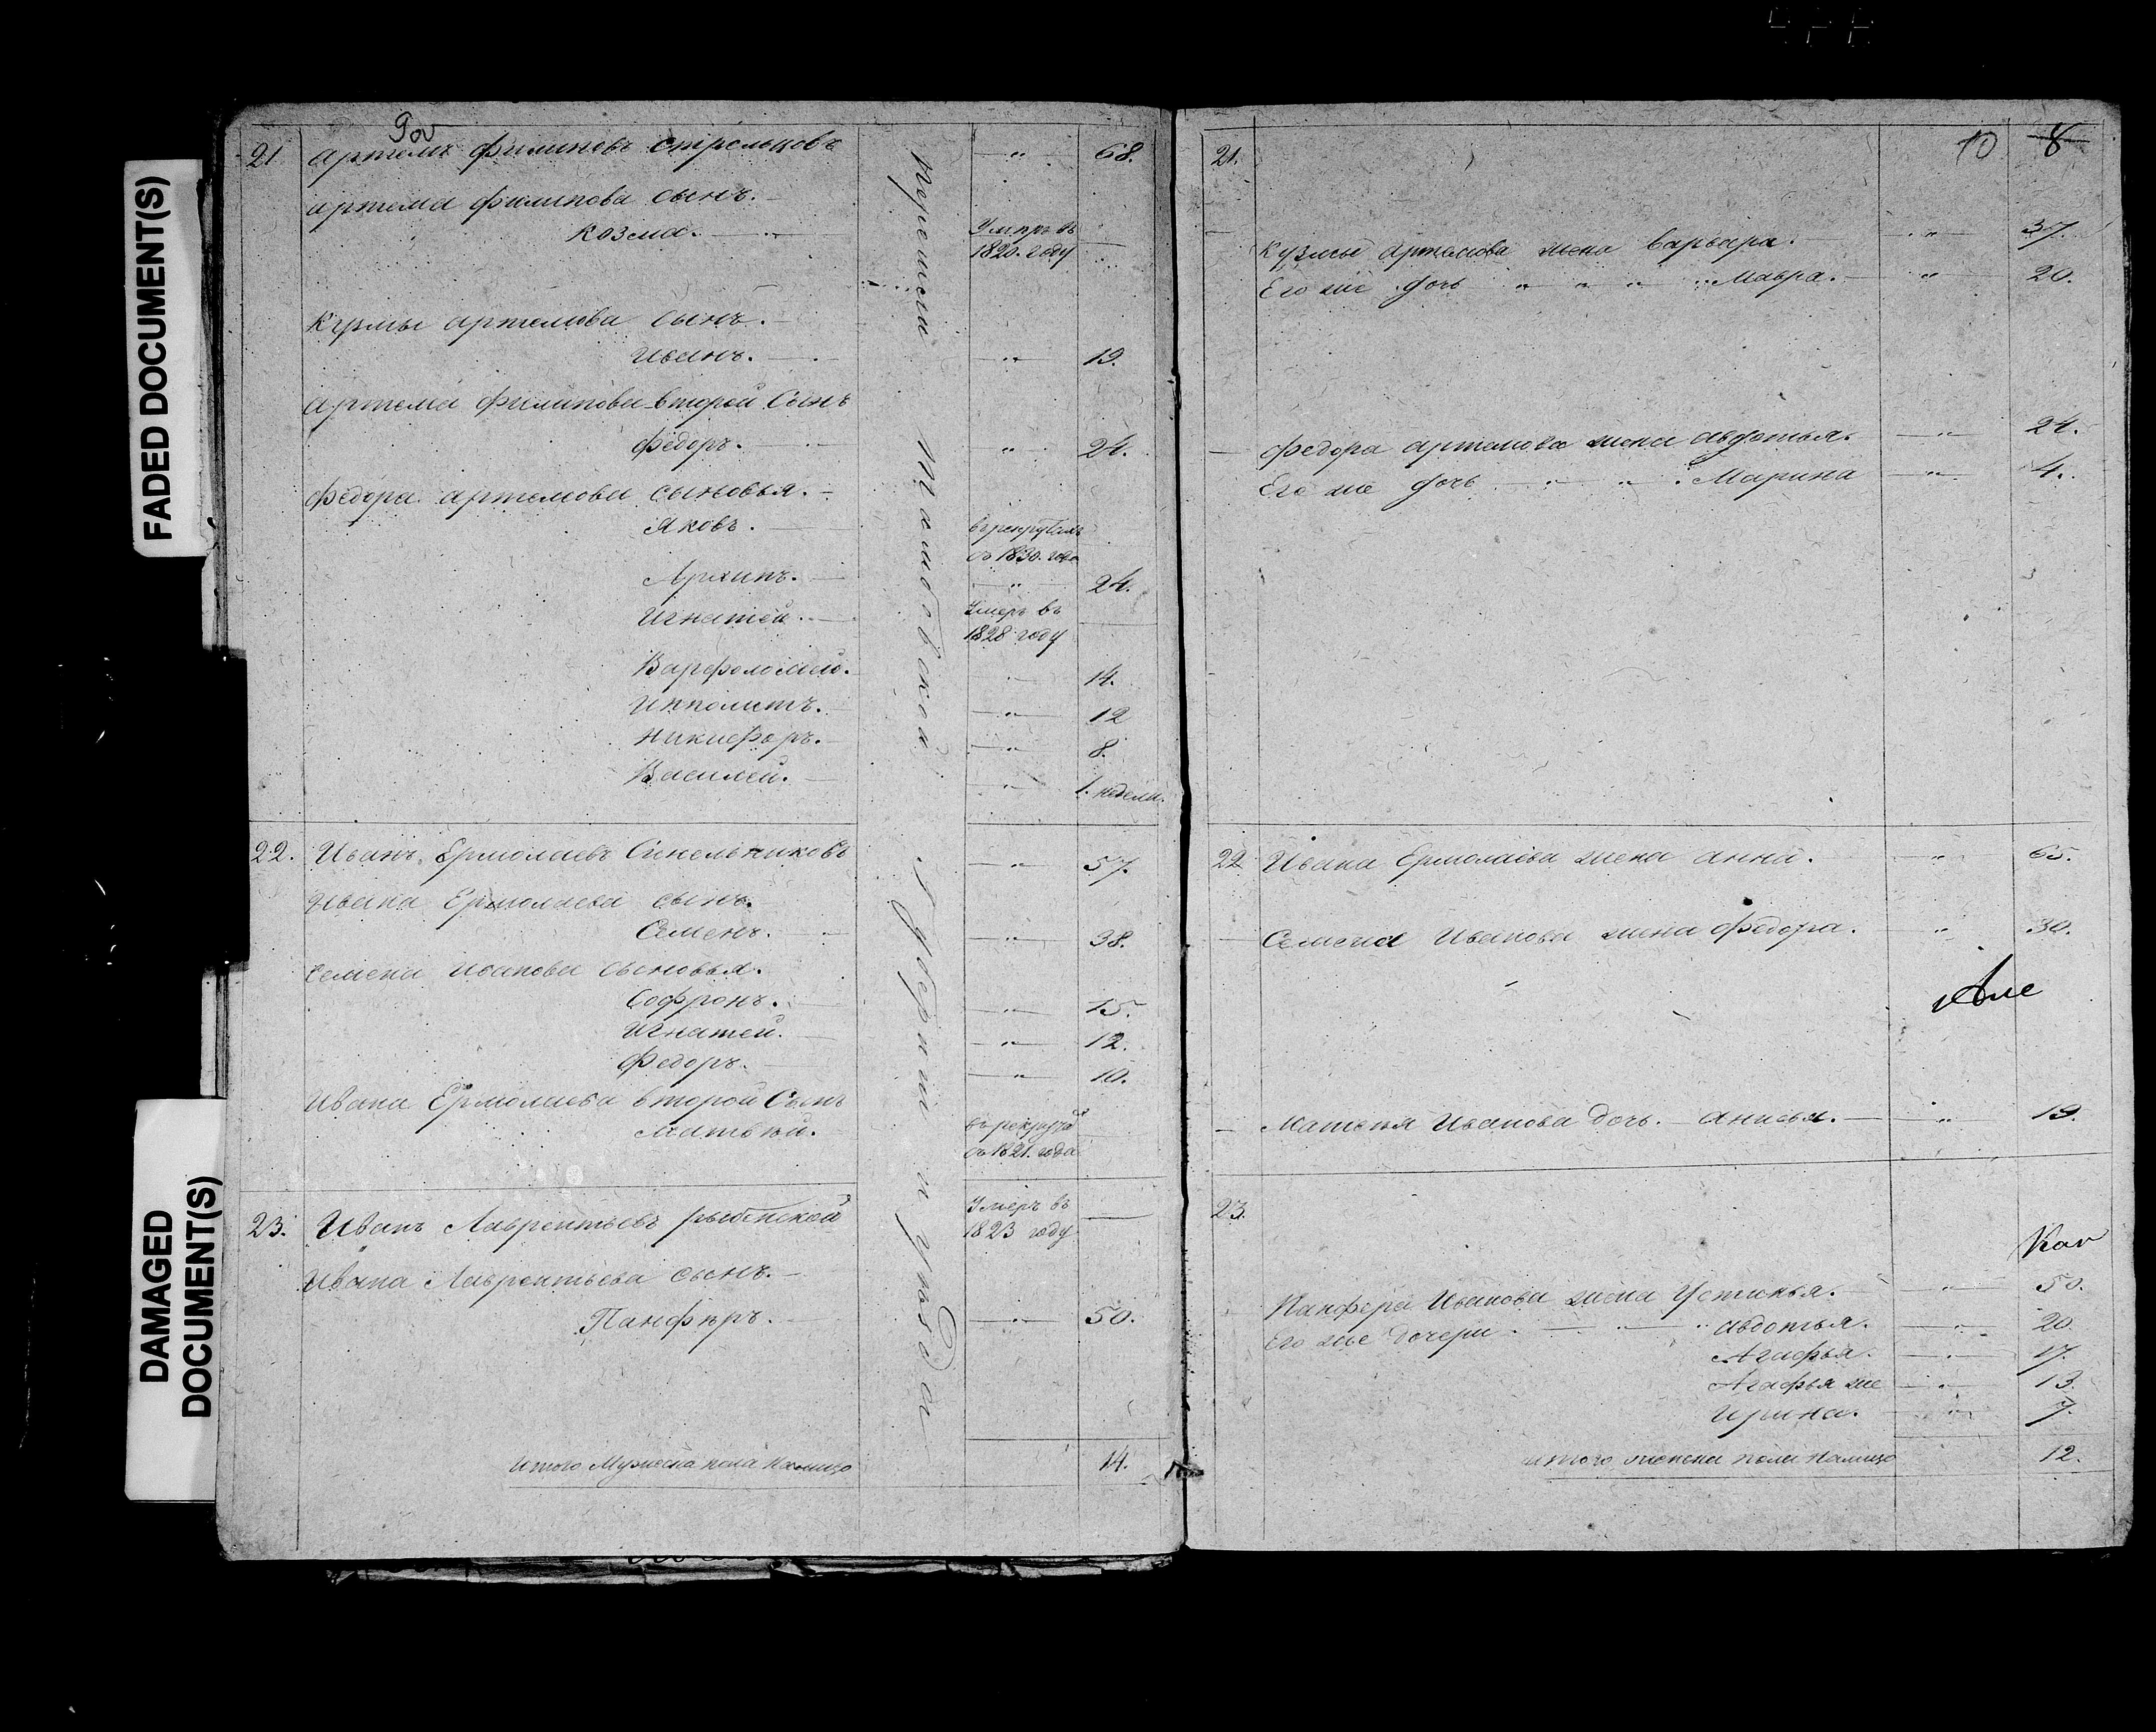 FADED DOCUMENT(S)
DAMAGED DOCUMENT(S)
21 Артемъ Филиповъ Стрельцовъ — " — 68.
Артема Филипова сынъ.
Козма. Умеръ въ
1820. году
Кузмы Артемова сынъ.
Иванъ. — " — 19.
Артема Филипова второй Сынъ
Федоръ. " 24.
Федора Артемова сыновья.
Яковъ. въ рекрутахъ
съ 1830. года
Архипъ. — " — 24.
Игнатей. Умеръ въ
1828 году
Варфоломей. 14.
Ипполитъ. — " — 12
Никифоръ. — " — 8.
Василей. " 1. недели.
Тамбовской Губернии и уезда
22. Иванъ Ермолаевъ Синельниковъ — " — 57.
Ивана Ермолаева сынъ.
Семенъ. — " — 38.
Семена Иванова сыновья.
Софронъ. — " — 15.
Игнатей. — " — 12.
Федоръ. — " — 10.
Ивана Ермолаева второй Сынъ
Матвѣй. въ рекрутах
съ 1821. года
23. Иванъ Лаврентьевъ Умеръ въ
1823 году
Ивана Лаврентьева сынъ.
Панфѣръ. — " — 50.
итого Мужеска пола налицо 14.
10 8
21.
Кузмы Артемова жена Варвара. — " — 37.
Его же дочь " " " Мавра. — " 20.
Федора Артемова жена Авдотья. — " — 24.
Его же дочь — " — " . Марина — " — 4.
22 Ивана Ермолаева жена Анна. " 65.
Семена Иванова жена Федора. " 30.
Але
Матвѣя Иванова дочь. Анисья. — " — 19.
23.
Кол
Панфера Иванова жена Устинья. — " — 50.
Его же дочери — " — " Авдотья. — " — 20.
Агафья. — " — 17.
Агафья же — " — 13.
Ирина. — " — 7.
итого женска пола налицо 12.